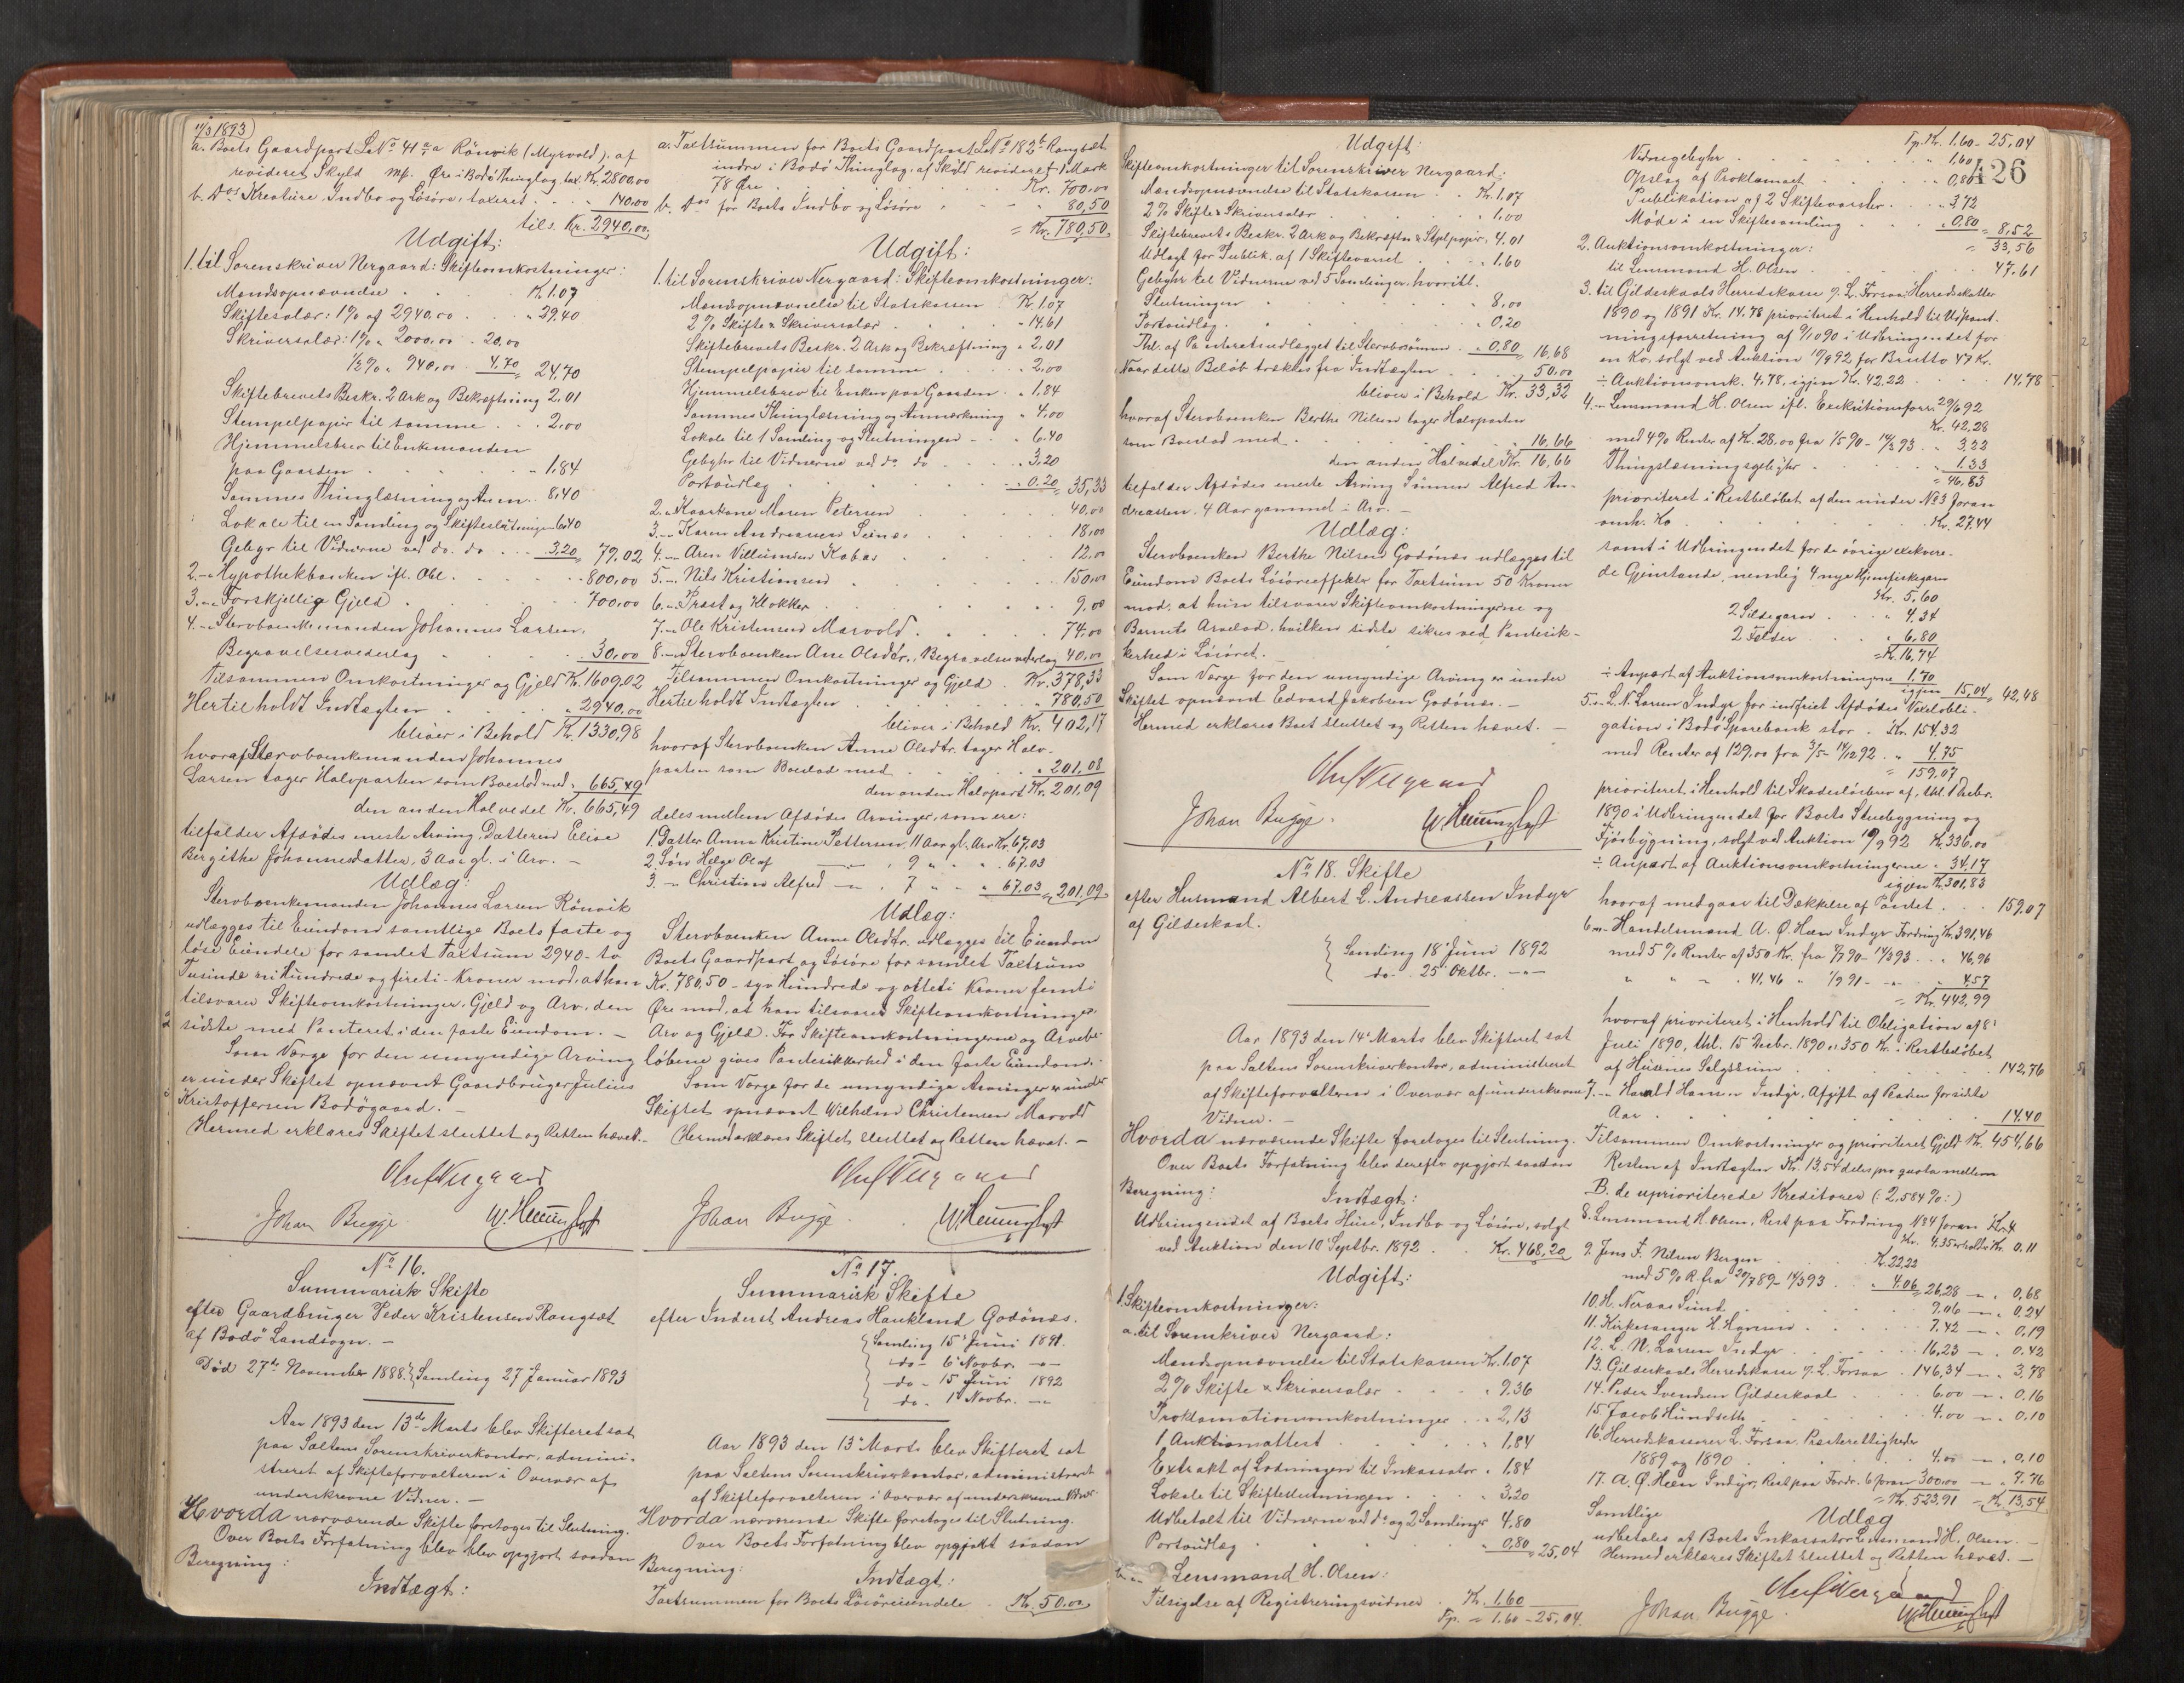 11/3 1893
a. Boets Gaardpart L.No 41 a Rönvik (Myrvold), af
revideret Skyld Mk. Øre i Bodö Thinglag, tax. Kr. 2800,00
b. Dos Kreature, Indbo og Løsöre, taxeret . . 140,00
tils. Kr. 2940,00
Udgift:
1. til Sorenskriver Nergaard: Skifteomkostninger:
Mandsopnævnelse . . Kr. 1.07
Skiftesalær: 1% af 2940,00 . . " 29.40
Skriversalær: 1% " 2000,00 . 20,00
1/2% " 940,00 . 4,70 = 24,70
Skiftebrevets Beskr. 2 Ark og Bekræftning 2,01
Stempelpapir til samme . . . 2,00
Hjemmelsbrev til Enkemanden
paa Gaarden . . . " 1,84
Sammes Thinglæsning og Anm. . 8,40
Lokale til en Samling og Skifteslutningen 6,40
Gebyr til Vidnerne ved do. do . . . 3,20 = 79,02
2. - Hypothekbanken ifl. Obl. . . . 800,00
3. - Forskjellige Gjeld . . . 700,00
4. - Stervboenkemanden Johannes Larsen,
Begravelsesvederlag . . . 30,00
Tilsammen Omkostninger og Gjeld Kr. 1609,02
Hertil holdt Indtægten . . . " 2940,00
bliver i Behold Kr. 1330,98
hvoraf Stervboenkemanden Johannes
Larsen tager Halvparten som Boeslod med " 665,49
den anden Halvedel Kr. 665,49
tilfalder Afdödes eneste Arving, Datteren Elise
Bergithe Johannesdatter, 3 Aar gl. i Arv. -
Udlæg:
Stervboenkemanden Johannes Larsen Rönvik
udlægges til Eiendom samtlige Boets faste og
löse Eiendele for samlet Taxtsum 2940 - to
Tusinde ni Hundrede og fireti - Kroner mod, at han
tilsvarer Skifteomkostninger, Gjeld og Arv, den
sidste med Panteret i den faste Eiendom. -
Som Værge for den umyndige Arving
er under Skiftet opnævnt Gaardbruger Julius
Kristoffersen Bodögaard. -
Hermed erklæres Skiftet sluttet og Retten hævet. -
Oluf Nergaard
Johan Bugge. W. Henningsen
No 16.
Summarisk Skifte
efter Gaardbruger Peder Kristensen Rangsæt
af Bodö Landsogn. -
Död 27de November 1888. } Samling 27 Januar 1893
Aar 1893 den 13de Marts blev Skifteret sat
paa Saltens Sorenskriverkontor, admini-
streret af Skifteforvalteren i Overvær af
underskrevne Vidner. -
Hvorda nærværende Skifte foretoges til Slutning.
Over Boets Forfatning blev blev opgjort saadan
Beregning:
Indtægt:
a. Taxtsummen for Boets Gaardpart L.No 182 b Rangsæt
indre i Bodö Thinglag, af Skyld revideret 1 Mark
78 Øre . . . Kr. 700.00
b. dos for Boets Indbo og Løsöre . . . 80,50
= Kr. 780,50
Udgift:
1. til Sorenskriver Nergaard: Skifteomkostninger:
Mandsopnævnelse til Statskassen Kr. 1.07
2% Skifte & Skriversalær . . . " 14.61
Skiftebrevets Beskr. 2 Ark og Bekræftning " 2,01
Stempelpapir til samme . . . " 2,00
Hjemmelsbrev til Enken paa Gaarden . " 1,84
Sammes Thinglæsning og Anmerkning " 4,00
Lokale til 1 Samling og Slutningen . . . " 6.40
Gebyhr til Vidnerne ved do do . . . " 3,20
Portoudlæg . . . " 0.20 = 35,33
2. - Kaarkone Maren Petersen . . . 40,00
3. - Karen Andreasen Seines . . . 18,00
4. - Aren Villumsen Kobaas . . . 12,00
5. - Nils Kristiansen . . . 150,00
6. - Præst og Klokker . . . 9,00
7. - Ole Kristensen Marvold . . . 74,00
8. - Stervboenken Ane Olsdtr., Begravelsesvederlag 40,00
Tilsammen Omkostninger og Gjeld . Kr. 378,33
Hertil holdt Indtægten . . . " 780,50
bliver i Behold Kr. 402,17
hvoraf Stervboenken Anne Olsdtr. tager Halv-
parten som Boeslod med . . . " 201,08
den anden Halvpart Kr. 201,09
deles mellem Afdödes Arvinger, som ere:
1. Datter Anna Kristine Pettersen, 11 Aar gl. Arv Kr. 67,03
2. Sön Helge Olaf — " — . 9 " " . " 67.03
3. - " Christian Alfred — " . 7 " " " 67,03 = 201,09
Udlæg:
Stervboenken Anne Olsdtr. udlægges til Eiendom
Boets Gaardpart og Løsöre for samlet Taxtsum
Kr. 780,50 - syv Hundrede og otteti Kroner femti
Øre mod, at han tilsvarer Skifteomkostninger,
Arv og Gjeld. For Skifteomkostningerne og Arvebe-
löbene gives Pantesikkerhed i den faste Eiendom.
Som Værge for de umyndige Arvinger er under
Skiftet opnævnt Wilhelm Christensen Marvold
Hermed erklæres Skiftet sluttet og Retten hævet. -
Oluf Nergaard
Johan Bugge. W. Henningsen
No 17.
Summarisk Skifte
efter Inderst Andreas Haukland Godönæs.
{ Samling 15 Juni 1891.
do - 6 Novbr. - " -
do - 15 Juni 1892
do - 1 Novbr. - " -
Aar 1893 den 13 Marts blev Skifteret sat
paa Saltens Sorenskriverkontor, administreret
af Skifteforvalteren i Overvær af underskrevne Vidner
Hvorda nærværende Skifte foretoges til Slutning.
Over Boets Forfatning blev opgjort saadan
Beregning:
Indtægt:
Taxtsummen for Boets Løsöreiendele . Kr. 50.00
Udgift:
Skifteomkostninger til Sorenskriver Nergaard:
Mandsopnævnelse til Statskassen . Kr. 1.07
2% Skifte & Skriversalær . . . " 1.00
Skiftebrevets Beskr. 2 Ark og Bekræftn & Stplpapir, 4.01
Udlagt for Publik. af 1 Skiftevarsel . . . " 1.60
Gebyhr til Vidnerne ved 5 Samlinger, hvoriblt.
Slutningen . . . " 8,00
Portoudlæg . . . " 0,20
Thl. af Panteretsudlægget til Stervbosönnen . " 0,80 = 16,68
Naar dette Beløb trækkes fra Indtægten . . . 50.00
bliver i Behold Kr. 33,32
hvoraf Stervboenken Berthe Nilsen tager Halvparten
som Boeslod med . . . " 16,66
den anden Halvedel Kr. 16,66
tilfalder Afdödes eneste Arving Sönnen Alfred An-
dreassen, 4 Aar gammel i Arv. -
Udlæg:
Stervboenken Berthe Nilsen Godönæs udlægges til
Eiendom Boets Løsöreeffekter for Taxtsum 50 Kroner
mod, at hun tilsvarer Skifteomkostningerne og
Barnets Arvelod, hvilken sidste sikres ved Pantesik-
kerhed i Løsöret. -
Som Værge for den umyndige Arving er under
Skiftet opnævnt Edvard Jakobsen Godönæs. -
Hermed erklæres Boet sluttet og Retten hævet. -
Oluf Nergaard
Johan Bugge. W. Henningsen
No 18. Skifte
efter Husmand Albert L. Andreassen Indyr
af Gildeskaal.
{ Samling 18 Juni 1892
do - 25 Oktbr. - " -
Aar 1893 den 14 Marts blev Skifteret sat
paa Saltens Sorenskriverkontor, administreret
af Skifteforvalteren i Overvær af underskrevne
Vidner. -
Hvorda nærværende Skifte foretoges til Slutning.
Over Boets Forfatning blev derefter opgjort saadan
Beregning:
Indtægt:
Udbringendet af Boets Huse, Indbo og Løsöre, solgt
ved Auktion den 10 Septbr. 1892 . . Kr. 468,20
Udgift:
1. Skifteomkostninger:
a. til Sorenskriver Nergaard:
Mandsopnævnelse til Statskassen Kr. 1.07
2% Skifte & Skriversalær . . . " 9.36
Proklamationsomkostninger . . . " 2,13
1 Auktionsattest . . . " 1,84
Extrakt af Lodningen til Inkassator . " 1,84
Lokale til Skifteslutningen . . . " 3,20
Udbetalt til Vidnerne ved do og 2 Samlinger 4,80
Portoudlæg . . . " 0,80 = 25,04
Lensmand H. Olsen:
Tilsigelse af Registreringsvidner . Kr. 1.60
Tp. = 1.60 - 25,04.
Tp. Kr. 1.60 - 25,04
Vidnegebyhr . . . " 1,60
426
Opslag af Proklamaet . . . " 0,80
Publikation af 2 Skiftevarsler . . . " 3.72
Møde i en Skiftesamling . . . " 0,80 = 8,52
= 33,56
2. Auktionsomkostninger:
til Lensmand H. Olsen . . . 47.61
3. til Gildeskaals Herredskasse v. L. Forsaa, Herredsskatter
1890 og 1891 Kr. 14.78 prioriteret i Henhold til Udpant-
ningsforretning af 9/10 90 i Udbringendet for
en Ko, solgt ved Auktion 10/9 92 for Brutto 47 Kr.
÷ Auktionsomk. 4.78, igjen Kr. 42.22 . . . 14,78
4. - Lensmand H. Olsen ifl. Exekutionsforr. 29/6 92
Kr. 42,28
med 4% Renter af Kr. 28.00 fra 1/5 90 - 14/3 93 . " 3,22
Thinglæsningsgebyhr . . . " 1.33
= 46,83
prioriteret i Restbeløbet af den under No 3 foran
omh. Ko . . . Kr. 27.44
samt i Udbringendet for de övrige exekvere-
de Gjenstande, nemlig 4 nye Hjemfiskegarn
Kr. 5,60
2 Sildegarn . . . " 4,34
2 Felder . . . " 6,80
= Kr. 16,74
÷ Anpart af Auktionsomkostningerne 1,70
igjen 15,04 = 42,48
5. - L. N. Larsen Indyr for indfriet Afdödes Vexelobli-
gation i Bodö Sparebank stor . Kr. 154,32
med Renter af 129,00 fra 3/5 - 14/12 92 . " 4.75
" 159,07
prioriteret i Henhold til Skadesløsbrev af, thl. 1 Debr.
1890 i Udbringendet for Boets Stuebygning og
Fjøsbygning, solgt ved Auktion 10/9 92 Kr. 336.00
÷ Anpart af Auktionsomkostningerne " 34.17
igjen Kr. 301,83
hvoraf medgaar til Dækkelse af Pantet . . . 159.07
6. - Handelsmand A. Ø. Hæn Indyr Fordring Kr. 391,46
med 5% Renter af 350 Kr. fra 8/7 90 - 14/3 93 . . " 46,96
" " " " 41,46 " 1/9 91 - " . . . 4,57
= Kr. 442,99
hvoraf prioriteret i Henhold til Obligation af 8
Juli 1890, thl. 15 Decbr. 1890 " 350 Kr. i Restbeløbet
af Husenes Salgssum . . . 142,76
7. - Harald Hansen Indyr, Afgift af Pladsen for sidste
Aar . . . 14.40
Tilsammen Omkostninger og prioriteret Gjeld Kr. 454,66
Resten af Indtægten Kr. 13,54 deles pro quota mellem
B. de uprioriterede Kreditorer (: 2,584% :)
8. Lensmand H. Olsen, Rest paa Fordring No 4 foran
Kr. 4.35 erholdt Kr. 0.11
9. Jens F. Nilsen Bergen . . Kr. 22,22
med 5% R. fra 20/7 89 - 14/3 93 . . " 4.06 = 26,28 - " . 0,68
10. H. Neraas Sund . . . 9.06 - " . 0,24
11. Kirkesanger H. Hansen . . . 7,42 - " . 0,19
12. L. N. Larsen Indyr . . . 16,23 - " . 0.42
13. Gildeskaals Herredskasse v. L. Forsaa . 146,34 - " . 3,78
14. Peder Svendsen Gildeskaal . . . 6.00 - " . 0.16
15. Jacob Hundseth . . . 4.00 - " . 0.10
16. Herredskasserer L. Forsaa, Præsterettigheder
1889 og 1890 . . . 4,00 - " . 0,10
17. A. Ø. Hæn Indyr, Rest paa Fordr. 6 foran 300.00 - " . 7.76
= Kr. 523,91 - Kr. 13,54
Udlæg
Samtlige
udbetales af Boets Inkassator Lensmand H. Olsen. -
Hermed erklæres Skiftet sluttet og Retten hævet. -
Oluf Nergaard
Johan Bugge. W. Henningsen